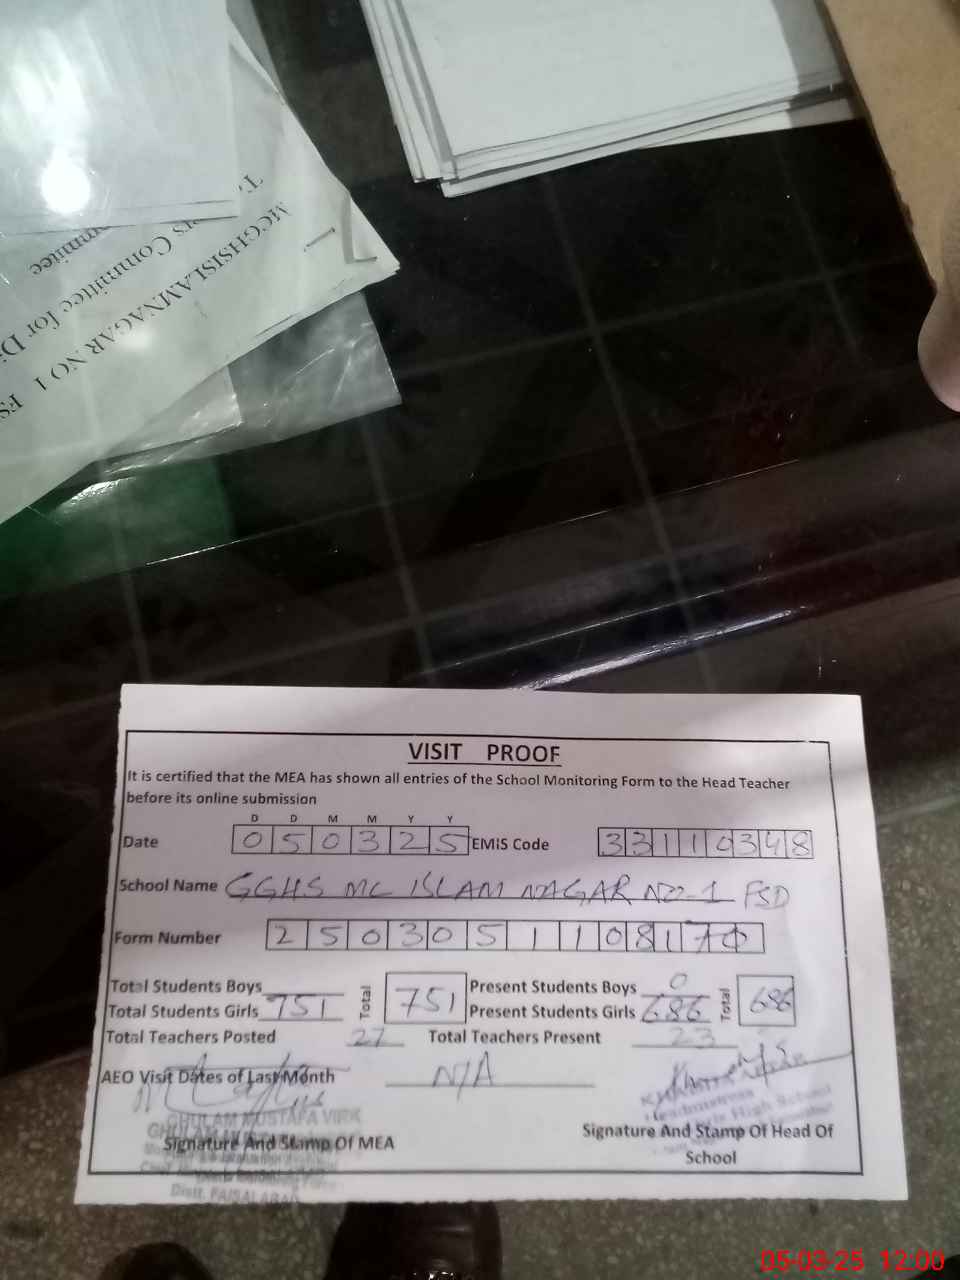 MCGHSISLAMNAGAR NO 1 FS
rs Committee for Di
VISIT PROOF
It is certified that the MEA has shown all entries of the School Monitoring Form to the Head Teacher
before its online submission
D D M M Y Y
Date 0 5 0 3 2 5 EMIS Code 3 3 1 1 0 3 4 8
School Name GGHS MC ISLAM NAGAR NO-1 FSD
Form Number 2 5 0 3 0 5 1 1 0 8 1
Total Students Boys Total 751 Present Students Boys 0 Total 686
Total Students Girls 751 Present Students Girls 686
Total Teachers Posted 27 Total Teachers Present 23
AEO Visit Dates of Last Month N/A
GHULAM MUSTAFA VIRK
Headmistress
High School
Signature And Stamp Of MEA
Signature And Stamp Of Head Of
School
Distt. FAISALABAD
05-03-25 12:00